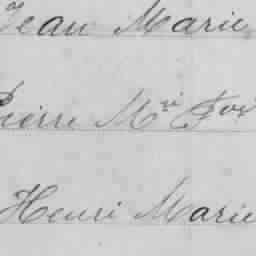 Jean Marie
Pierre Mie
Henri Marie